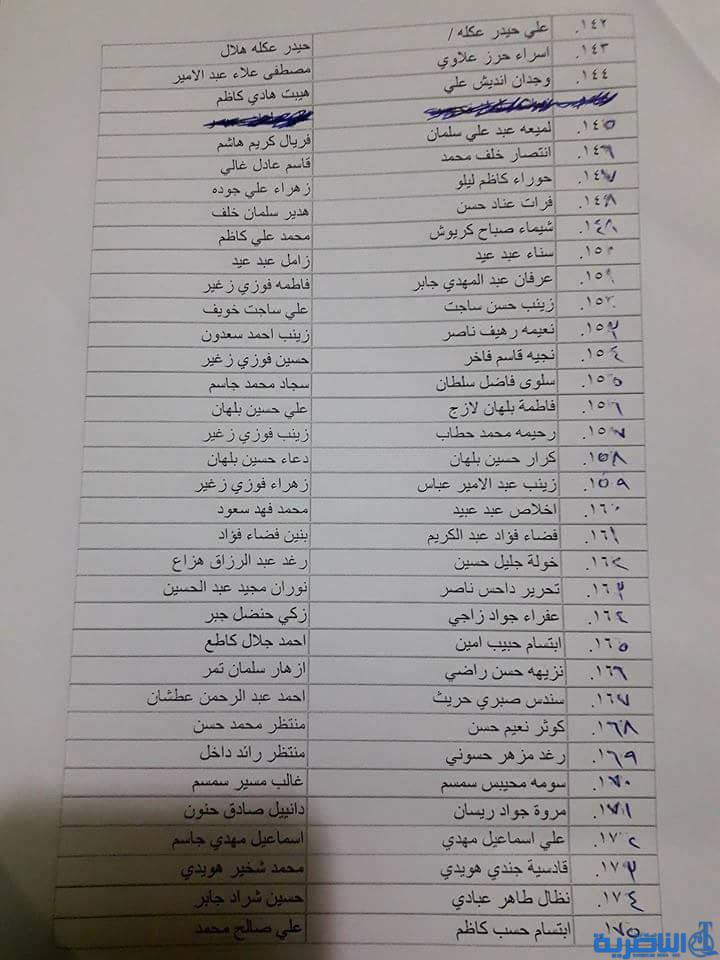 ١٤٢. علي حيدر عكله / حيدر عكله هلال
١٤٣. اسراء حرز علاوي مصطفى علاء عبد الامير
١٤٤. وجدان انديش علي هيبت هادي كاظم
١٤٥. لميعه عبد علي سلمان فريال كريم هاشم
١٤٦. انتصار خلف محمد قاسم عادل غالي
١٤٧. حوراء كاظم ليلو زهراء علي جوده
١٤٨. فرات عناد حسن هدير سلمان خلف
شيماء صباح كريوش محمد علي كاظم
١٥٠. سناء عبد عيد زامل عبد عيد
١٥١. عرفان عبد المهدي جابر فاطمه فوزي زغير
١٥٢. زينب حسن ساجت علي ساجت خويف
١٥٣. نعيمه رهيف ناصر زينب احمد سعدون
١٥٤. نجيه قاسم فاخر حسين فوزي زغير
١٥٥. سلوى فاضل سلطان سجاد محمد جاسم
١٥٦. فاطمة بلهان لازج علي حسين بلهان
١٥٧. رحيمه محمد حطاب زينب فوزي زغير
١٥٨. كرار حسين بلهان دعاء حسين بلهان
١٥٩. زينب عبد الامير عباس زهراء فوزي زغير
١٦٠. اخلاص عبد عبيد محمد فهد سعود
١٦١. فضاء فؤاد عبد الكريم بنين فضاء فؤاد
١٦٢. خولة جليل حسين رغد عبد الرزاق هزاع
١٦٣. تحرير داحس ناصر نوران مجيد عبد الحسين
١٦٤. عفراء جواد زاجي زكي حنضل جبر
١٦٥. ابتسام حبيب امين احمد جلال كاطع
١٦٦. نزيهه حسن راضي ازهار سلمان تمر
١٦٧. سندس صبري حريث احمد عبد الرحمن عطشان
١٦٨. كوثر نعيم حسن منتظر محمد حسن
١٦٩. رغد مزهر حسوني منتظر رائد داخل
١٧٠. سومه محيبس سمسم غالب مسير سمسم
١٧١. مروة جواد ريسان دانييل صادق حنون
١٧٢. علي اسماعيل مهدي اسماعيل مهدي جاسم
١٧٣. قادسية جندي هويدي محمد شخير هويدي
١٧٤. نظال طاهر عبادي حسين شراد جابر
١٧٥. ابتسام حسب كاظم علي صالح محمد
الناصرية